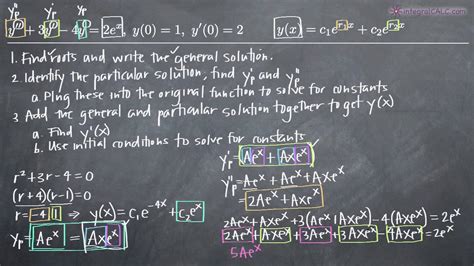 y'p y'p yp
y'' + 3y' − 4y = 2eˣ, y(0) = 1, y'(0) = 2 y(x) = c₁e^{r₁x} + c₂e^{r₂x}
1. Find roots and write the general solution.
2. Identify the particular solution, find y'p and y''p
a. Plug these into the original function to solve for constants
3. Add the general and particular solution together to get y(x)
a. Find y'(x)
b. Use initial conditions to solve for constants
r² + 3r − 4 = 0
(r+4)(r−1) = 0
r = −4, 1 → y(x) = c₁e^{−4x} + c₂eˣ
yp = Aeˣ = Axeˣ
y'p = Aeˣ + Axeˣ
y''p = Aeˣ + Aeˣ + Axeˣ
= 2Aeˣ + Axeˣ
2Aeˣ + Axeˣ + 3(Aeˣ + Axeˣ) − 4(Axeˣ) = 2eˣ
2Aeˣ + Axeˣ + 3Aeˣ + 3Axeˣ − 4Axeˣ = 2eˣ
5Aeˣ